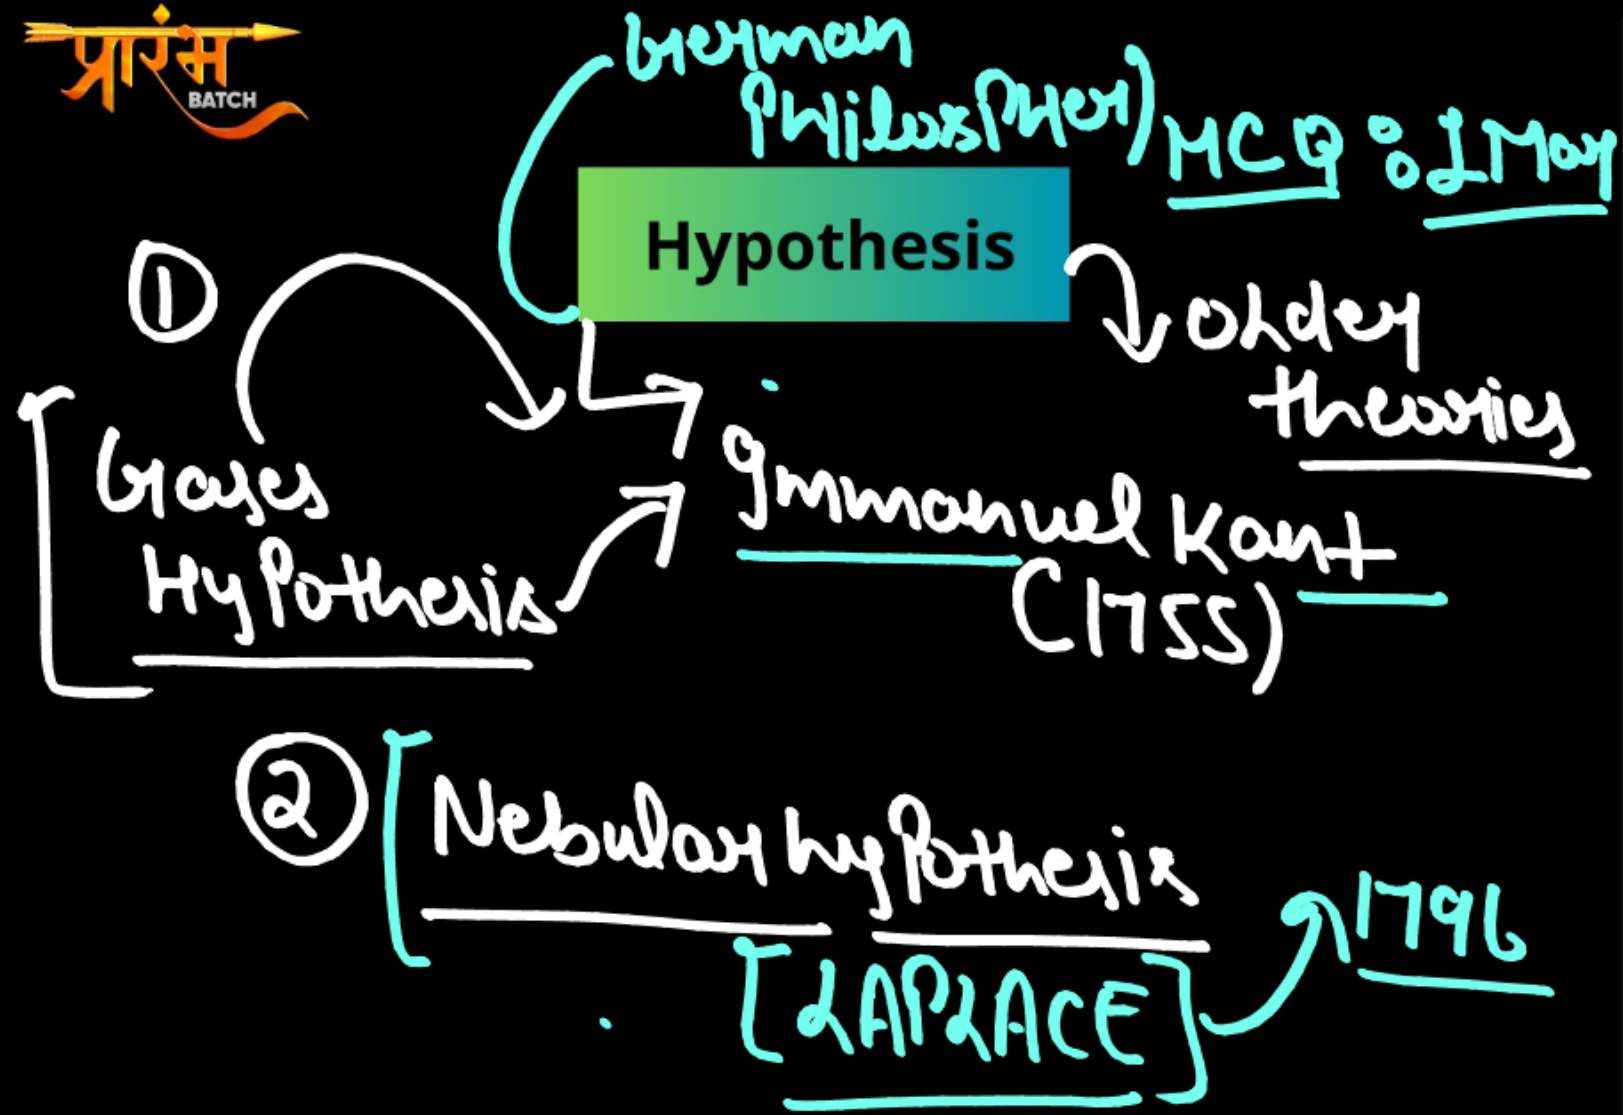 प्रारंभ
BATCH
German
Philosopher)
MCQ : 1 Mar
Hypothesis
①
older
theories
Gases
Hypothesis
Immanuel Kant
(1755)
②
Nebular hypothesis
[LAPLACE]
1796